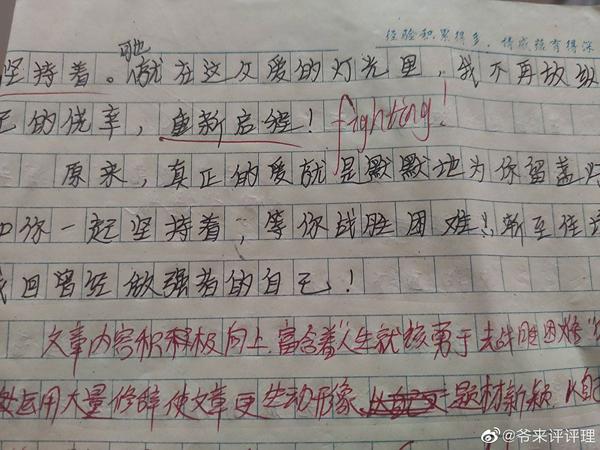 经验积累得多,
坚持着。她就在这个爱的灯光里,我不再放纵
己的优率,重新启程! fighting!
原来,真正的爱就是默默地为你留盏灯
你一起坚持着,等你战胜困难!渐至佳
回曾经做强者的自己!
文章内容积极向上,富含着"人生就该勇于去战胜困难"
运用大量修辞使文章更生动形象,题材新颖,从自己
@爷来评评理